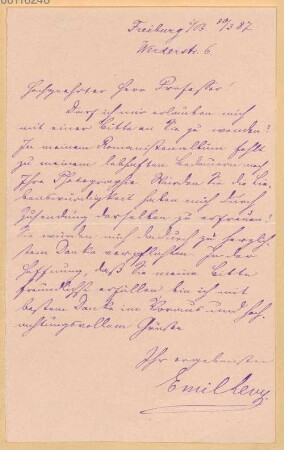 Freiburg i/B 29/3 87
Werderstr. 6.
Hochgeehrter Herr Professor!
Darf ich mir erlauben mich
mit einer Bitte an Sie zu wenden?
In meinem Romanistenalbum fehlt
zu meinem lebhaften Bedauern noch
Ihre Photographie. Würden Sie die Lie-
benswürdigkeit haben mich durch
Zusendung derselben zu erfreuen?
Sie würden mich dadurch zu herzlich-
stem Danke verpflichten. In der
Hoffnung, daß Sie meine Bitte
freundlichst erfüllen bin ich mit
bestem Danke im Voraus und hoch-
achtungsvollem Gruße
Ihr ergebenster
Emil Levy.